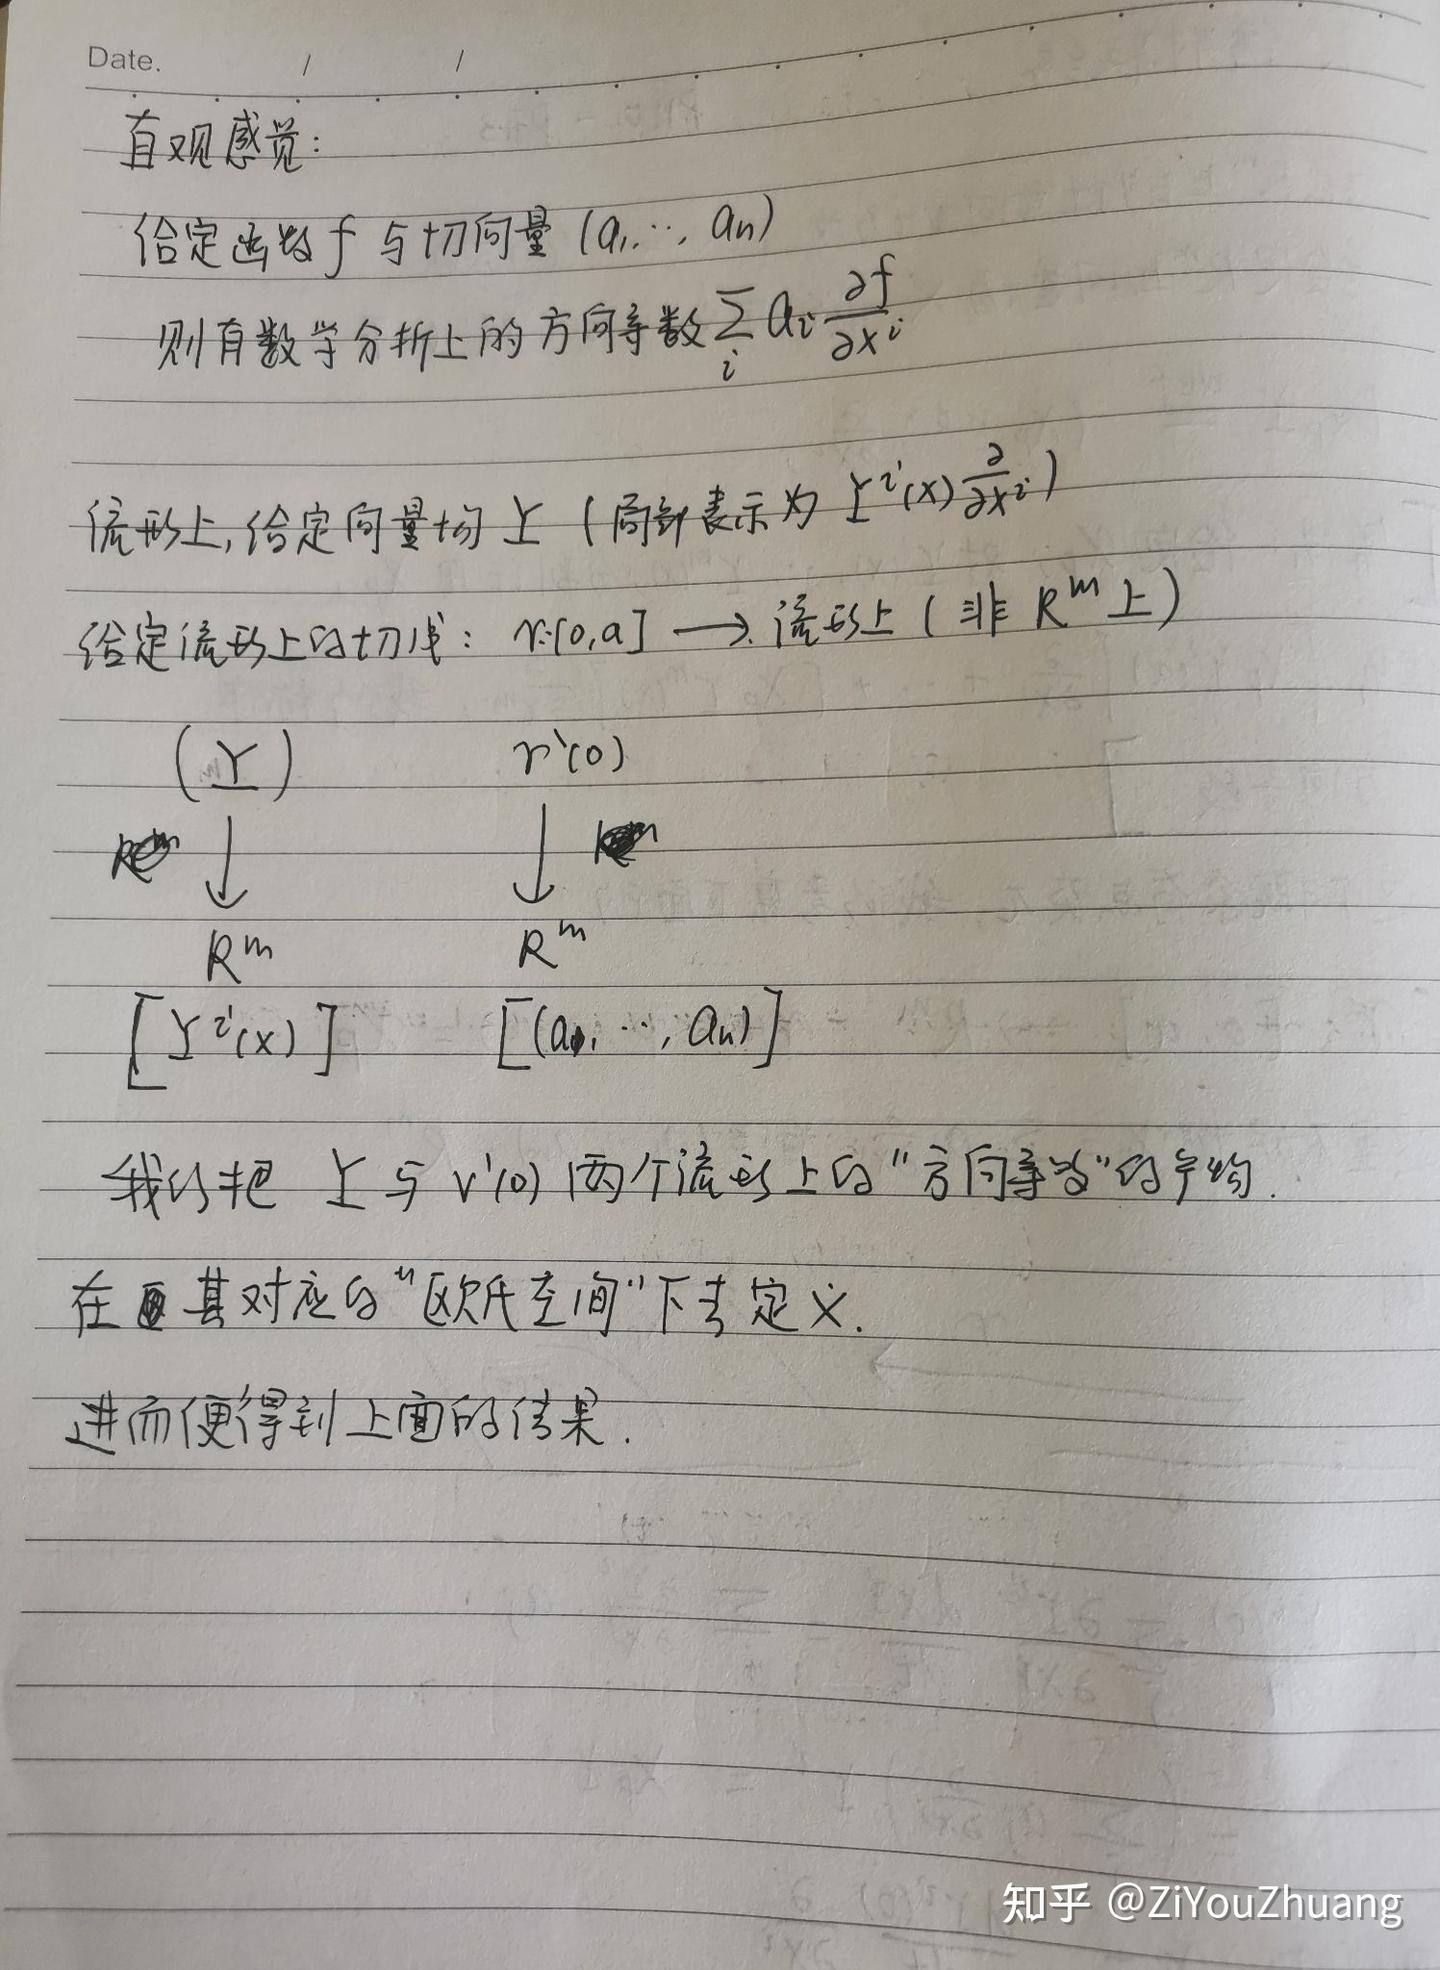 Date. / /
直观感觉:
给定函数 f 与切向量 (a₁, …, aₙ)
则有数学分析上的方向导数 ∑ᵢ aᵢ ∂f/∂xⁱ
流形上,给定向量场 Y (局部表示为 Yⁱ(x) ∂/∂xⁱ)
给定流形上的切线: r:[0,a] → 流形上 (非 Rᵐ 上)
(Y) r'(0)
↓ ↓
Rᵐ Rᵐ
[Yⁱ(x)] [(a₁, …, aₙ)]
我们把 Y 与 r'(0) 两个流形上的"方向导数"的
在其对应的"欧氏空间"下去定义.
进而便得到上面的结果.
知乎 @ZiYouZhuang